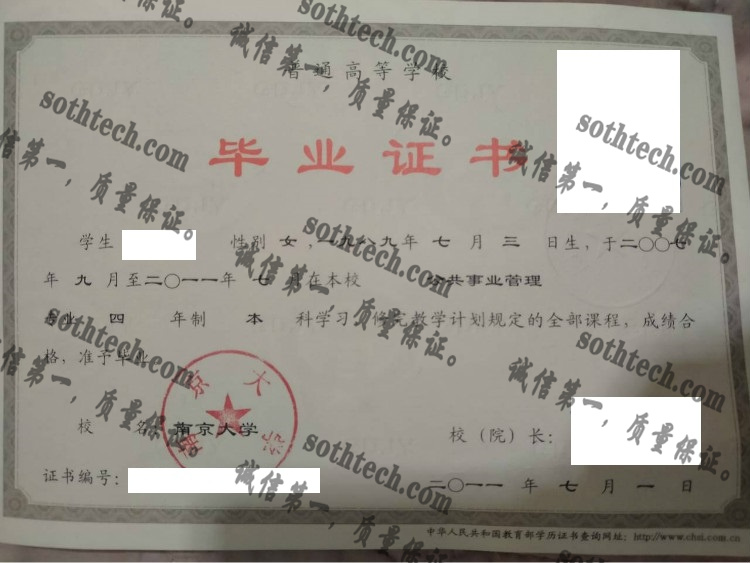 普通高等学校
毕业证书
学生 性别 女，一九八九年 七 月 三 日生，于二〇〇七
年 九 月至二〇一一年 七 月在本校 公共事业管理
专业 四 年制 本 科学习，修完教学计划规定的全部课程，成绩合
格，准予毕业。
南京大学
校 名：南京大学 校（院）长：
证书编号： 二〇一一 年 七 月 一 日
中华人民共和国教育部学历证书查询网址：http://www.chsi.com.cn
sothtech.com
诚信第一，质量保证。
sothtech.com
诚信第一，质量保证。
sothtech.com
诚信第一，质量保证。
sothtech.com
诚信第一，质量保证。
sothtech.com
诚信第一，质量保证。
sothtech.com
诚信第一，质量保证。
sothtech.com
诚信第一，质量保证。
sothtech.com
诚信第一，质量保证。